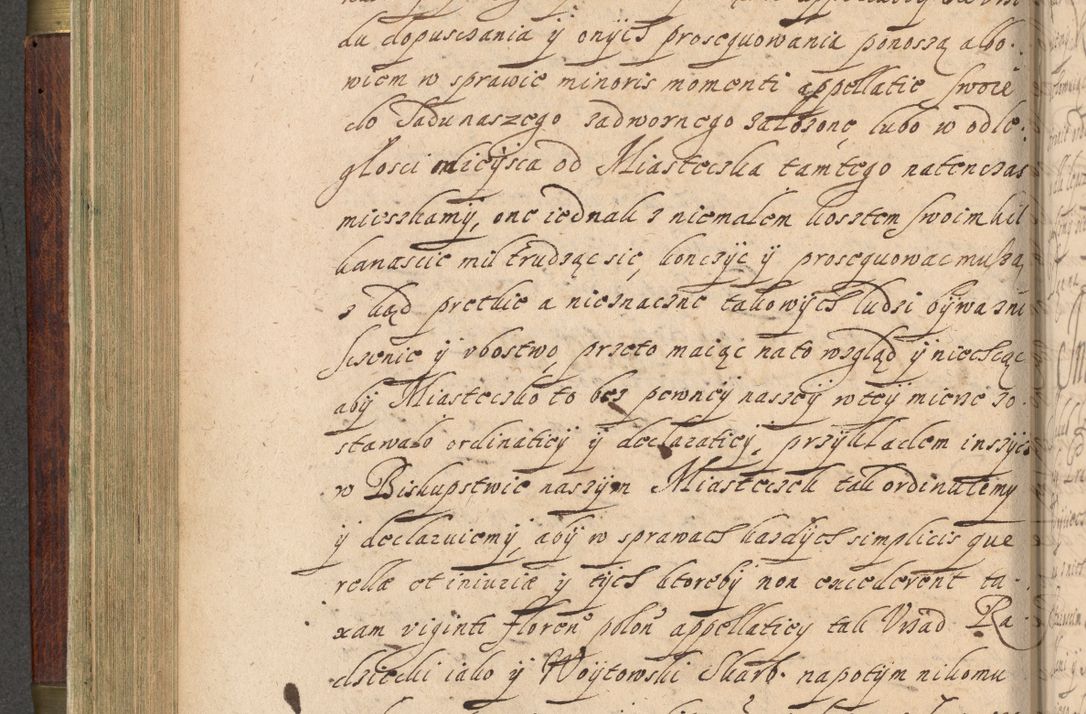 du dopuszczania ÿ onÿch prosequowania ponoszą albo-
wiem w sprawie minoris momenti appellatie swoie
do Sadu naszego zadwornego założone lubo w odle-
głosci mieÿsca od Miasteczka tamtego natenczas
mieszkamÿ, one iednak z niemałem kosztem swoim kil
kanascie mil trudząc sie, konczÿc ÿ prosequowac muszą
z kąd prętkie a nieznaczne takowÿch ludzi bÿwa zni
sczenie ÿ vbostwo, przeto maiąc na to wzgląd ÿ niechcąc
abÿ Miasteczko to bez pewneÿ naszeÿ w teÿ mierze zo-
stawało ordinatieÿ ÿ declaratieÿ, przÿkladem inszÿch
w Biskupstwie naszÿm Miasteczek tak ordinuiemÿ
ÿ declaruiemÿ, abÿ w sprawach kazdÿch simplicis que
rellæ et iniuriæ ÿ tÿch ktorebÿ non excederent ta-
xam viginti floren polon appellatieÿ tak Vrząd Ra-
dziecki iako ÿ Woÿtowski Skarb. napotÿm nikomu